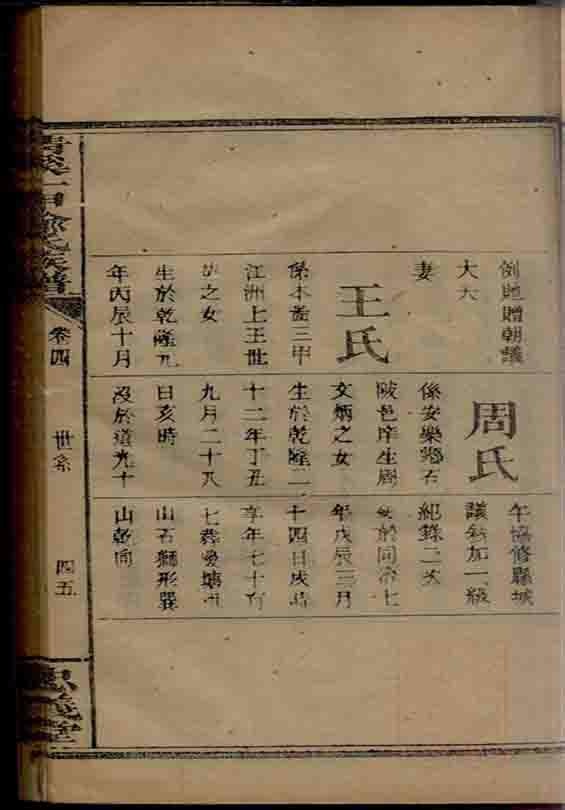 例貤贈朝議
大夫
妻
王氏
係本啚三甲
江洲上王世
之女
生於乾隆九
年丙辰十月
周氏
係安樂鄉石
陂邑庠生周
文炳之女
生於乾隆二
十二年丁丑
九月二十八
日亥時
沒於道光十
午協修縣城
議敘加一級
紀錄二次
於同治七
年戊辰三月
十四日戌時
享年七十有
七葬愛塘
山石獅形巽
山乾向
一甲氏族譜
卷四
世系
四五
忠義堂